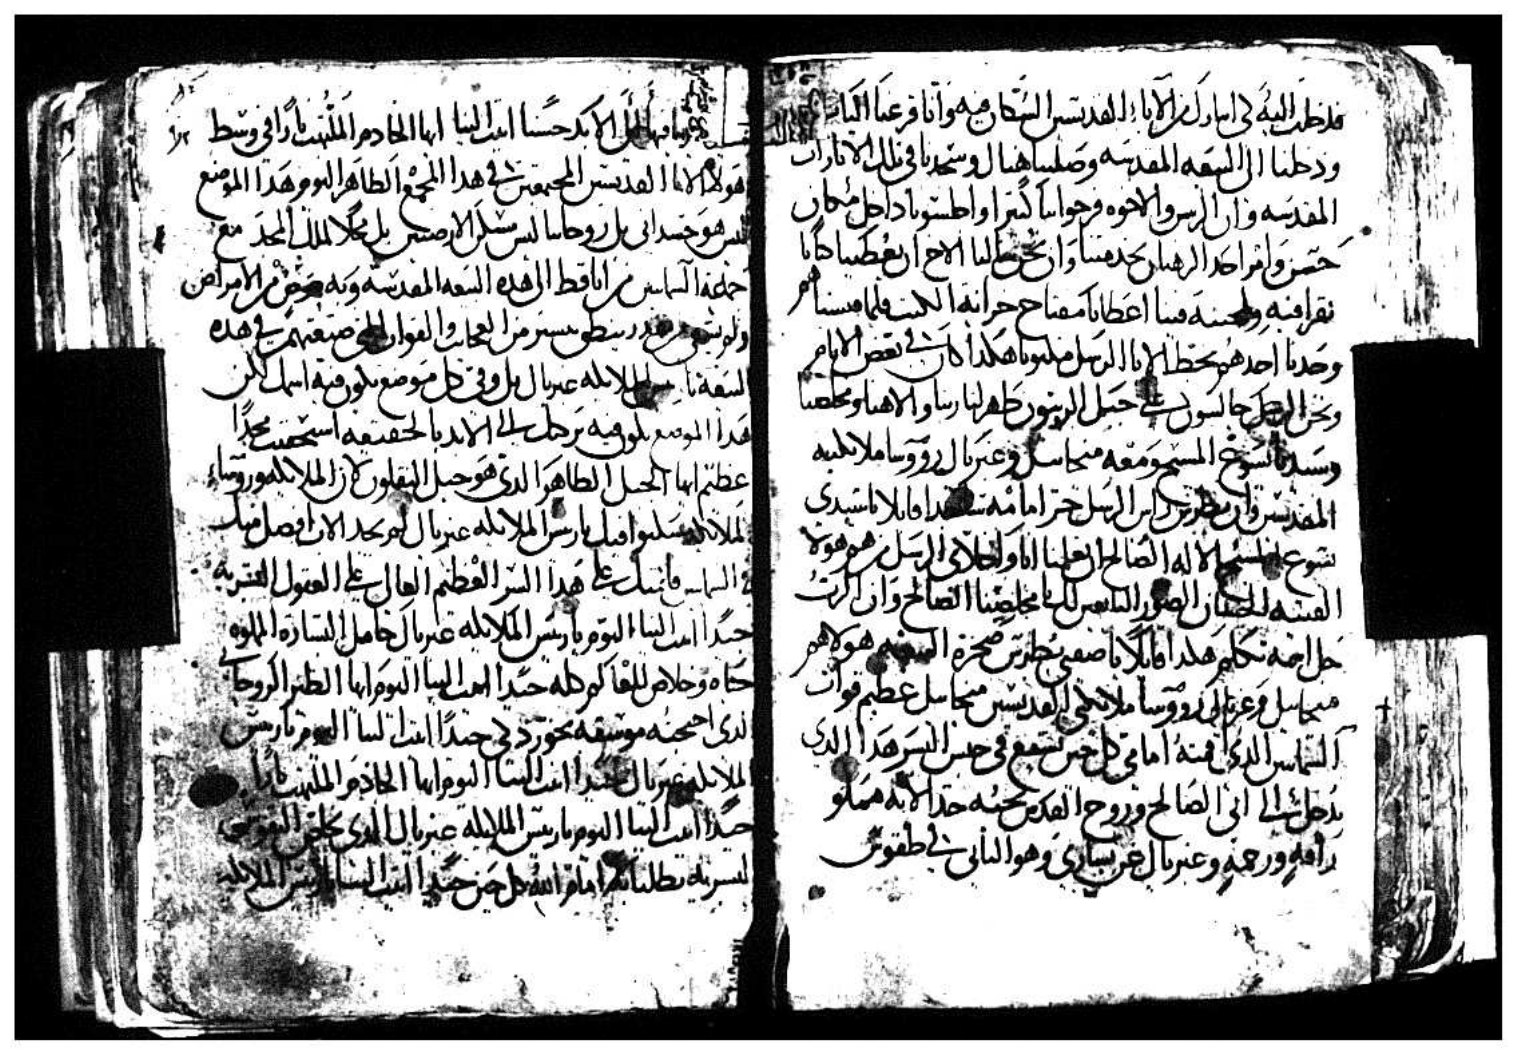 فدخلت اليه لى اتبارك من الاباء القديسين السكان فيه وأنا فرغنا
ودخلنا الى البيعه المقدسه وصلينا هناك وسجدنا فى تلك الاثارات
المقدسه وان الريس والاخوه فرحوا بنا كثيرا واطلسونا داخل مكان
حسن وامر احد الرهبان يخدمنا وان نحن سالنا الاخ ان يعطينا كتابا
نقرا فيه ولمحبته فينا اعطانا مفتاح خزانة الكتب فلما فتشناهم
وجدنا احدهم بخط الابا الرسل مكتوبا هكدا كان فى بعض الايام
ونحن الرسل جالسون على جبل الزيتون ظهر لنا ربنا والاهنا ومخلصنا
وسيدنا يسوع المسيح ومعه ميخاييل وغبريال رووسا ملايكته
المقدسين وان بطرس راس الرسل خر امامه ساجدا قايلا يا سيدى
يسوع المسيح الاله الصالح ان تعلمنا انا واخلاى الرسل من هم هولا
الفتيه الحسان الصور التابعين لك يا مخلصنا الصالح وان الرب
جل اسمه تكلم هكدا قايلا يا صفيى بطرس صخرة البيعه هولا هم
ميخاييل وغبريال رووسا ملايكتى القديسين ميخاييل عظيم قوات
السماييين الدى اقمته امامى كل حين يشفع فى جنس البشر هدا الدى
يدخل الى ابى الصالح وروح القدس يجده حدا لانه مملو
رأفه ورحمه وغبريال عن يسارى وهو الثانى فى طقوس
الاكبر حسنا اتيت الينا ايها الخادم الملتهب نارا فى وسط
هولا الابا القديسين المجتمعين فى هدا المجمع الطاهر اليوم هدا الموضع
ليس هو جسدانى بل روحانيا ليس مسكن الارضيين بل محلا للملك المجد مع
جماعة السماييين من اتا قط الى هده البيعه المقدسه وبه مرض من الامراض
ولم من العجايب والقوات التى صنعتهم فى هده
البيعه يا ريس الملايكه غبريال بل وفى كل موضع يكون فيه اسمك لكن
هدا الموضع يكون فيه بركتك الى الابد بالحقيقه استحقيت مجدا
عظيم ايها الجبل الطاهر الدى هو جبل النقلون لان الملايكه ورووساء
الملايكه سكنوا فيك يا ريس الملايكه غبريال لم نجد الان افضل منك
فى السمايين فايتنك على هدا السر العظيم العال على العقول البشريه
جيدا اتيت الينا اليوم يا ريس الملايكه غبريال حامل البشاره المملوه
حياه وخلاص للعالم كله جيدا اتيت الينا اليوم ايها الطير الروحانى
الدى اجنحته موسقه بخور دكى جيدا اتيت الينا اليوم يا ريس
الملايكه غبريال جيدا اتيت الينا اليوم ايها الخادم الملتهب نارا
جيدا اتيت الينا اليوم يا ريس الملايكه غبريال الدى يخلص النفوس
البشريه بطلباته امام الله كل حين جيدا اتيت الينا يا ريس الملايكه